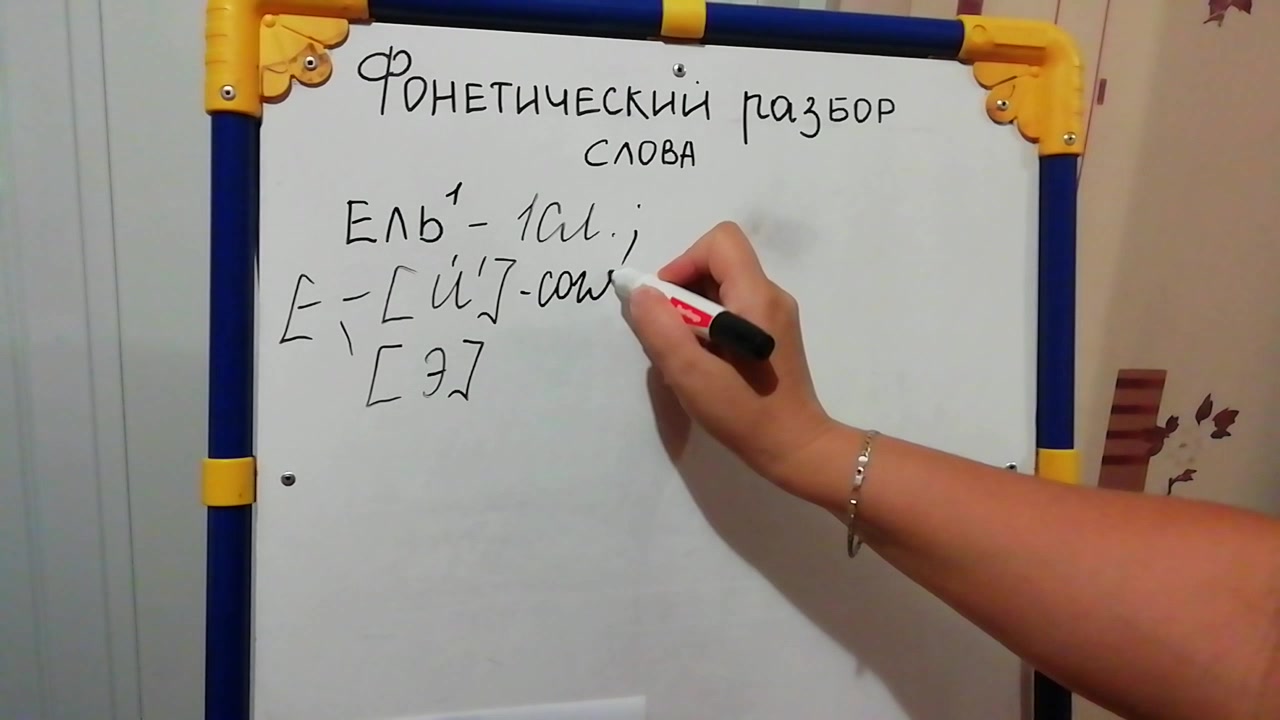 Фонетический разбор
слова
Ель¹ - 1 сл.;
Е - [й'] - согл
[э]